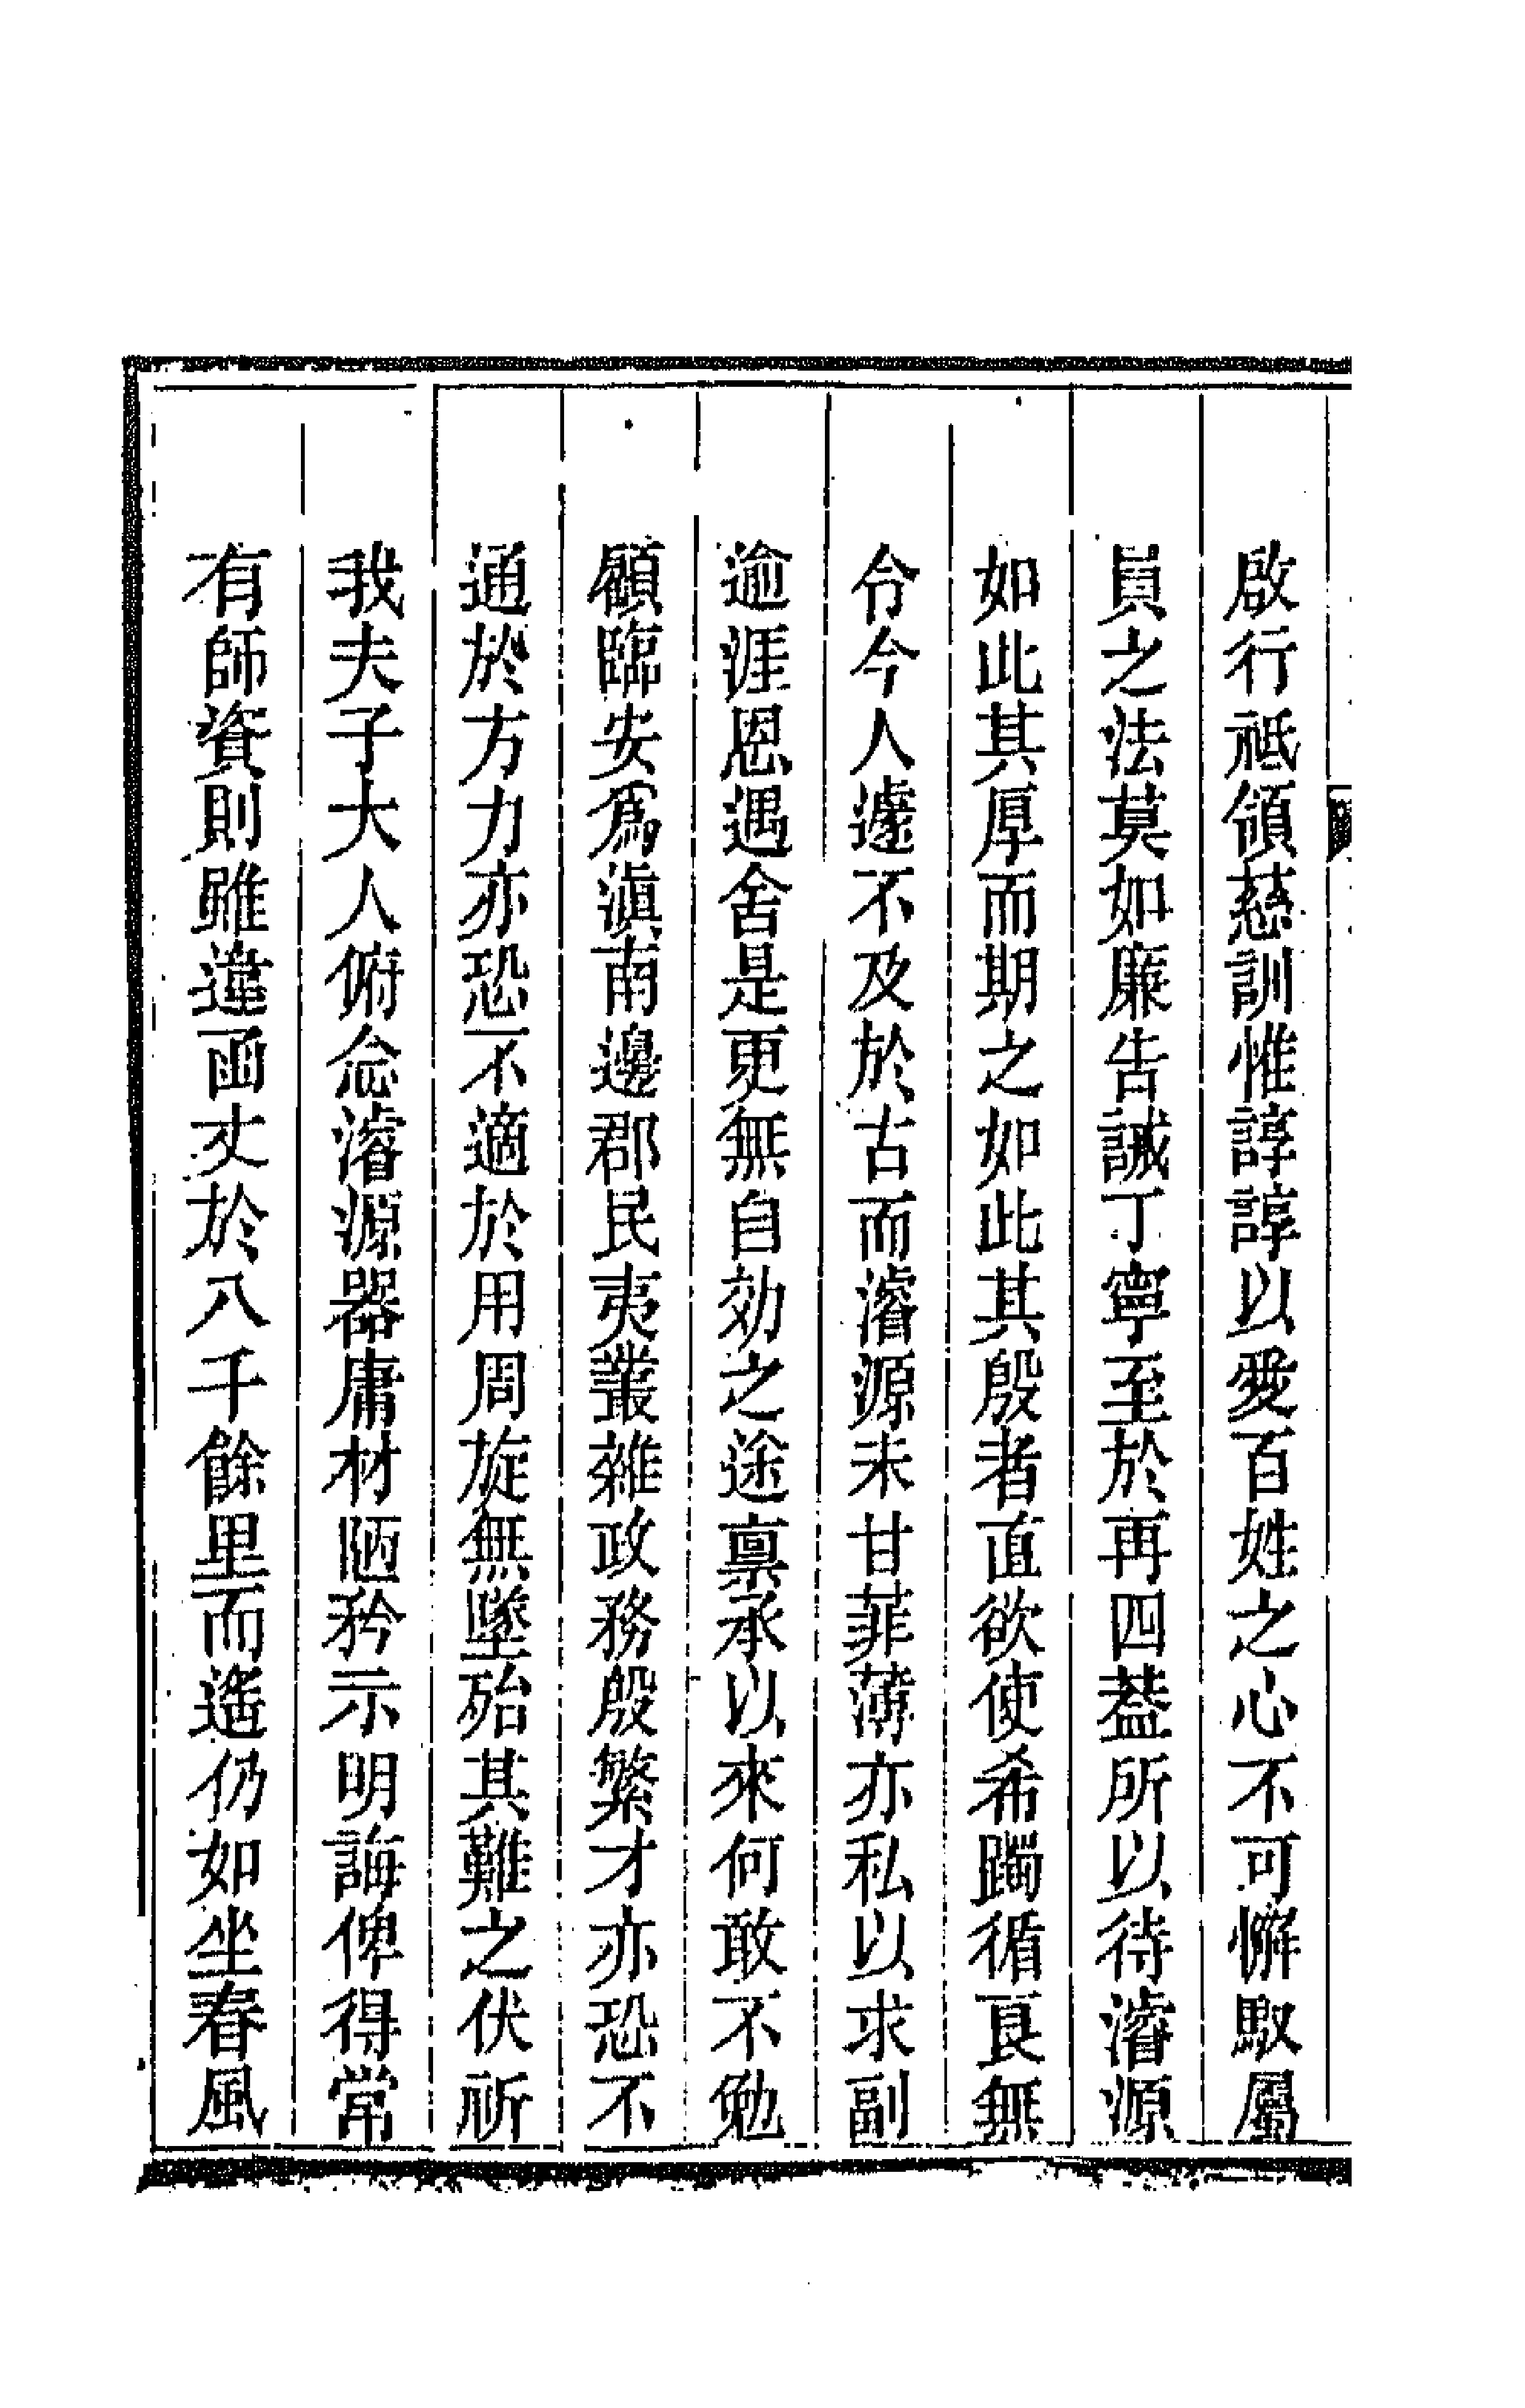 啟行祗領慈訓惟諄諄以愛百姓之心不可懈馭屬
員之法莫如廉告誡丁寧至於再四葢所以待濬源
如此其厚而期之如此其殷者直欲使希躅循良無
令今人遽不及於古而濬源未甘菲薄亦私以求副
逾涯恩遇舍是更無自効之途禀承以來何敢不勉
顧臨安爲滇南邊郡民夷叢雜政務殷繁才亦恐不
通於方力亦恐不適於用周旋無墜殆其難之伏祈
我夫子大人俯念濬源器庸材陋矜示明誨俾得常
有師資則雖違函丈於八千餘里而遙仍如坐春風